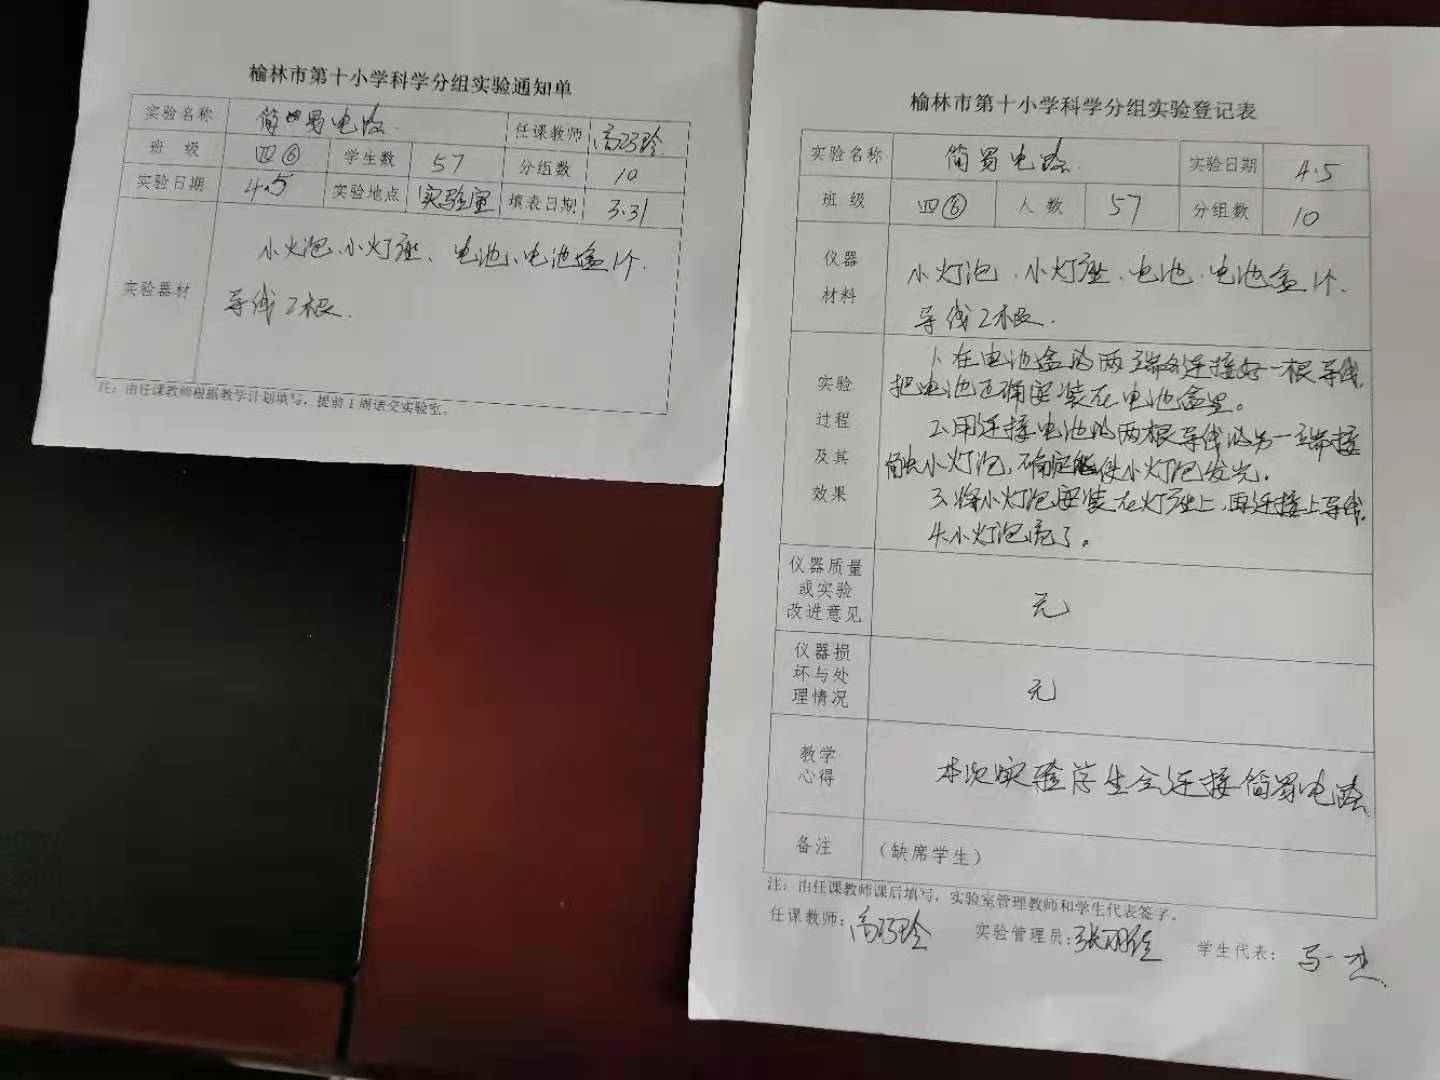 榆林市第十小学科学分组实验通知单
实验名称 简易电路 任课教师 高巧玲
班 级 四⑥ 学生数 57 分组数 10
实验日期 4.5 实验地点 实验室 填表日期 3.31
实验器材
小火泡、小灯座、电池、电池盒1个.
导线2根.
注：由任课教师根据教学计划填写，提前1周送交实验室。
榆林市第十小学科学分组实验登记表
实验名称 简易电路. 实验日期 4.5
班 级 四⑥ 人 数 57 分组数 10
仪器
材料
小灯泡、小灯座、电池、电池盒1个、
导线2根.
实验
过程
及其
效果
1.在电池盒的两端分连接好一根导线,
把电池正确安装在电池盒里。
2.用连接电池的两根导线的另一端接
触小灯泡,确定能使小灯泡发光.
3.将小灯泡安装在灯座上,再连接上导线.
4.小灯泡亮了。
仪器质量
或实验
改进意见
无
仪器损
坏与处
理情况
无
教学
心得
本次实验学生会连接简易电路
备注 （缺席学生）
注：由任课教师课后填写，实验室管理教师和学生代表签字。
任课教师：高巧玲 实验管理员：张 学生代表：马一杰